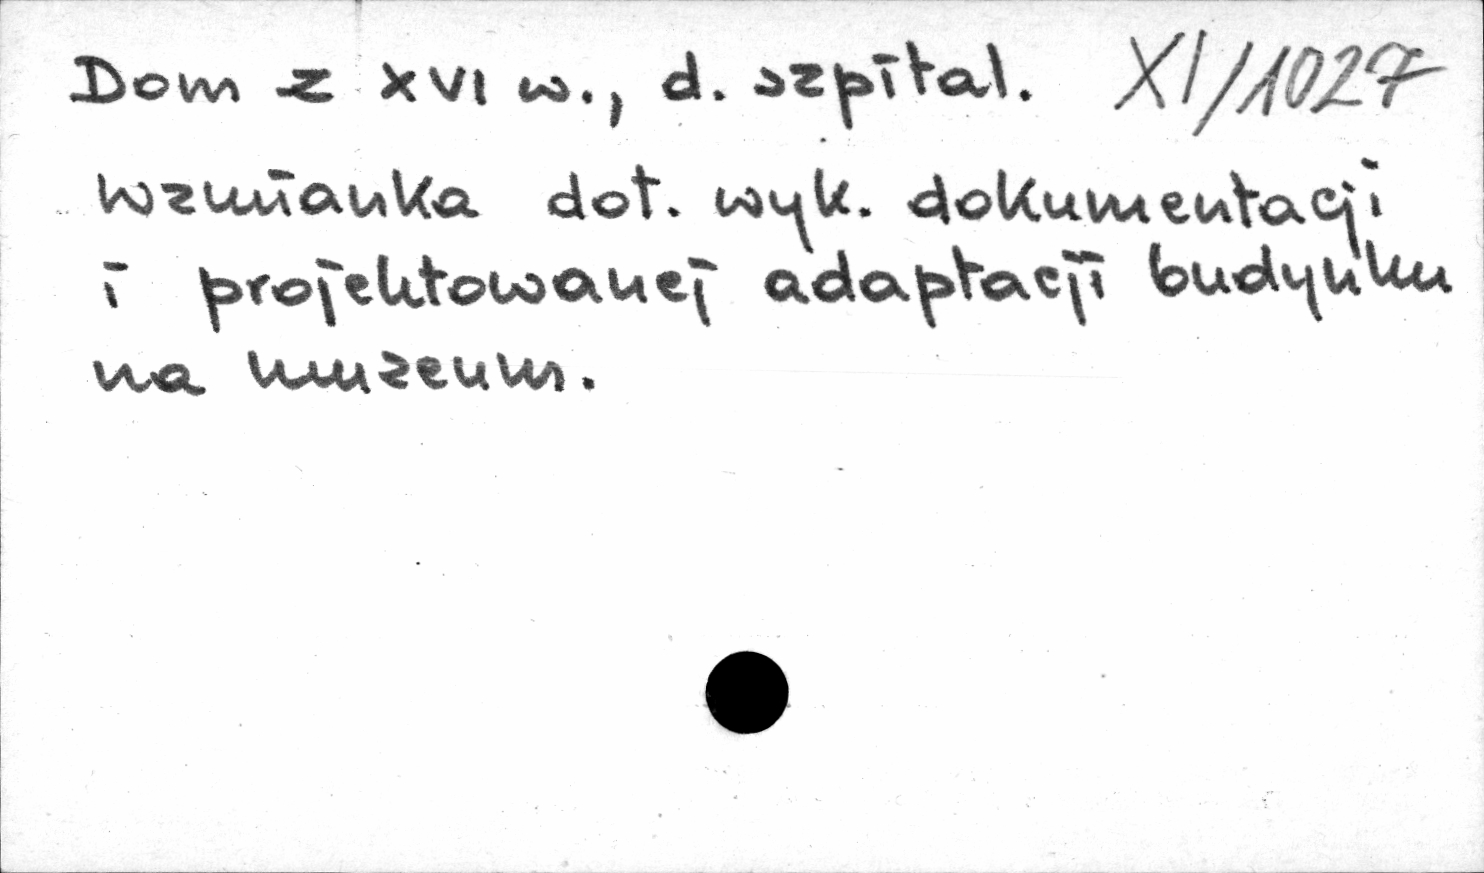 Dom z XVI w., d. szpital. XI/1027
wzmianka dot. wyk. dokumentacji
i projektowanej adaptacji budynku
na muzeum.